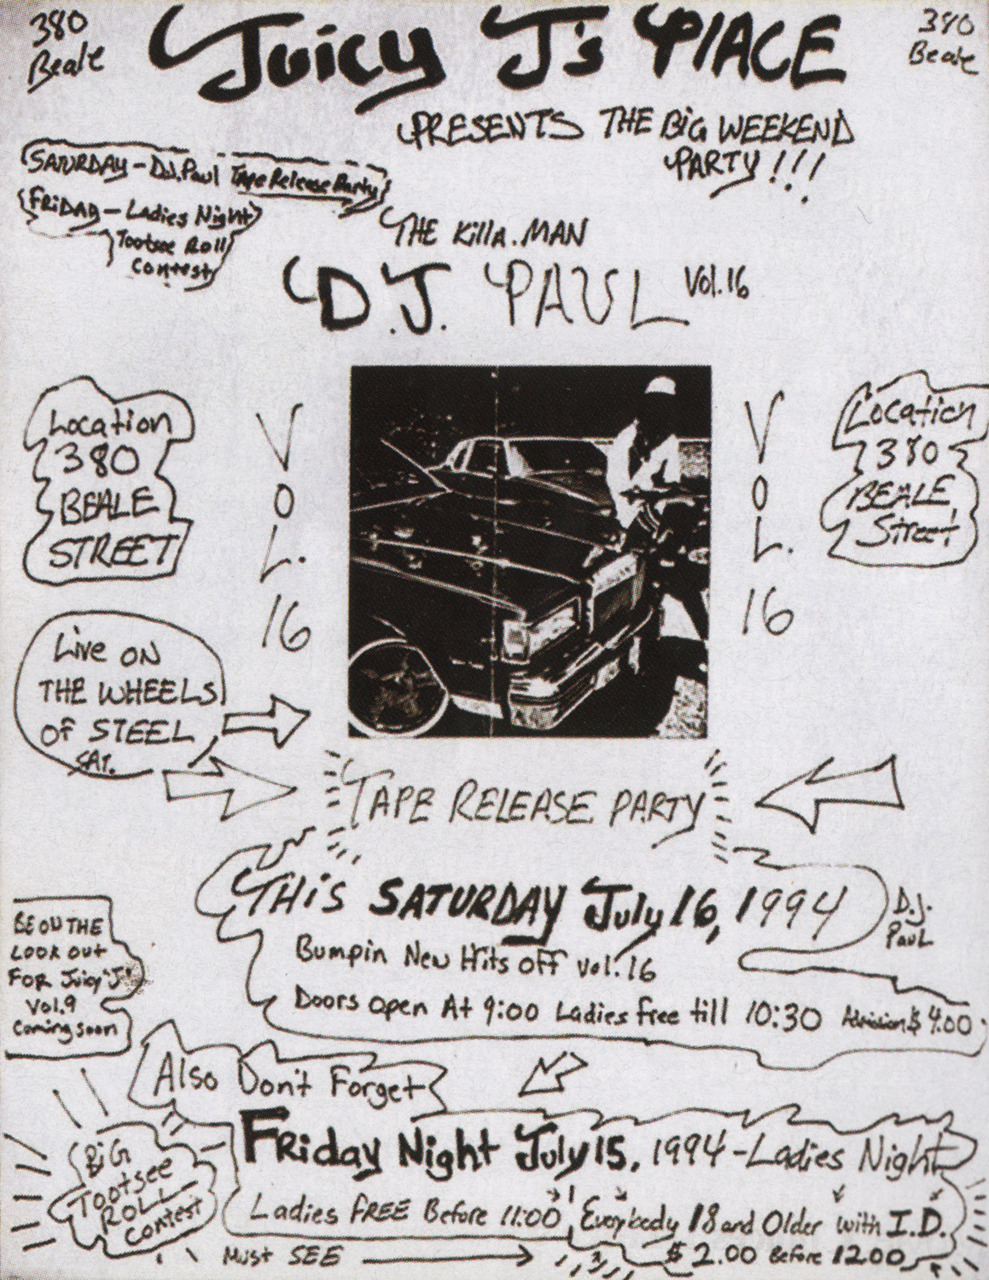 380
Beale
Juicy J's PlACE
380
Beale
PRESENTS THE BiG WEEKEND
PARTY!!!
SATURDAY - D.J. Paul Tape Release Party
FRiDAY - Ladies Night
Tootsee Roll
Contest
THE Killa.MAN
D.J. PAUL Vol.16
Location
380
BEALE
STREET
VOL.
16
VOL.
16
Location
380
BEALE
Street
Live ON
THE WHEELS
Of STEEL
SAT.
TAPE RELEASE PARTY
THiS SATURDAY July 16, 1994
D.J.
PauL
Bumpin New Hits off vol. 16
Doors Open At 9:00 Ladies free till 10:30 Admission $4.00
BE ON THE
LOOK out
FOR Juicy "J's"
Vol.9
Coming soon
Also Don't Forget
BiG
Tootsee
ROLL
Contest
FRiday Night July 15, 1994 - Ladies Night
Ladies FREE Before 11:00! Everybody 18 and Older with I.D.
Must SEE
$2.00 Before 12.00